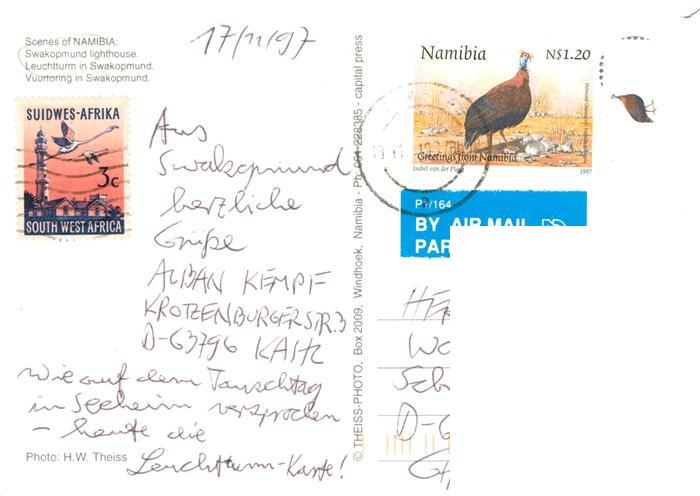 Scenes of NAMIBIA:
Swakopmund lighthouse.
Leuchtturm in Swakopmund.
Vuurtoring in Swakopmund.
17/11/97
SUIDWES-AFRIKA
3c
SOUTH WEST AFRICA
Aus
Swakopmund
herzliche
Grüße
ALBAN KEMPF
KROTZENBURGERSTR.3
D-63796 KAHL
Wie auf dem Tauschtag
in Seeheim versprochen
- heute die
Leuchtturm-Karte!
Photo: H.W. Theiss
© THEISS-PHOTO, Box 2009, Windhoek, Namibia - Ph: 061-228385 - capital press
Namibia N$1.20
Greetings from Namibia
Isabel van der Ploeg
1997
P1/164
BY AIR MAIL
PAR
HER
Wo
Sch
D-6